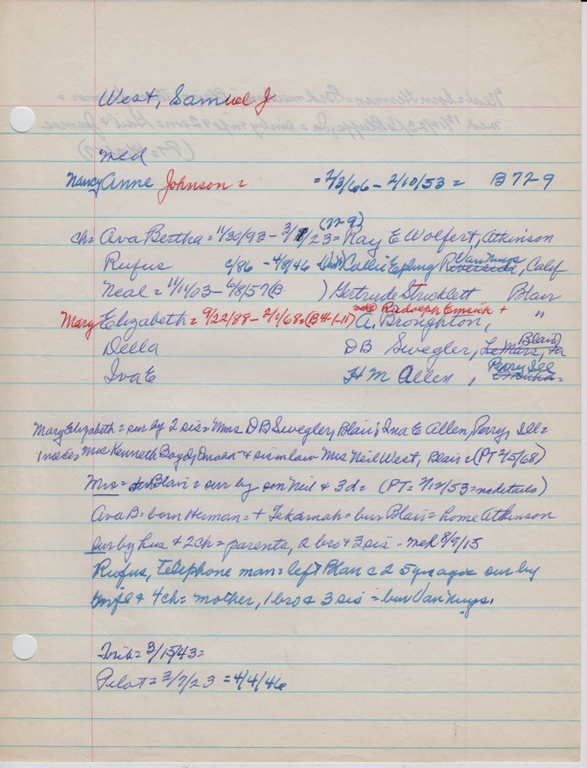 West, Samuel J
med
Nancy Anne Johnson = = 2/3/66 - 2/10/53 = B 77-9
(77-9)
ch= Ava Bertha = 11/30/93 - 3/1/23 = Ray E Wolfert, Atkinson
Rufus 6/86 - 4/8/46 Collie Epling Van Nuys, Calif
Neal = 11/11/03 - 6/8/57 (B ) Gertrude Stricklett Blair
Mary Elizabeth = 9/22/88 - 2/4/68 = (B 4-1-11) Radolph Emsick + A. Broughton, "
Della DB Swegler, Blair
Iva E H M Allen, Perry Ill
Mary Elizabeth = sur by 2 sis = Mmes DB Swegler, Blair; Ina E Allen, Perry, Ill =
1 niece = Mrs Kenneth Boyd, Omaha + sis in law Mrs Neil West, Blair = (PT 2/5/68)
Mrs = Blair = sur by son Neil + 3d = (PT = 2/12/53 = no details)
Ava B = born Herman = + Tekamah = bur Blair = home Atkinson
sur by hus + 2ch = parents, 2 bros + 3 sis - med 8/9/15
Rufus, telephone man = left Blair c 25 yrs ago = sur by
wife + 4ch = mother, 1 bro + 3 sis = bur Van Nuys.
Trib = 3/15/43 =
Pilot = 3/7/23 = 4/4/46